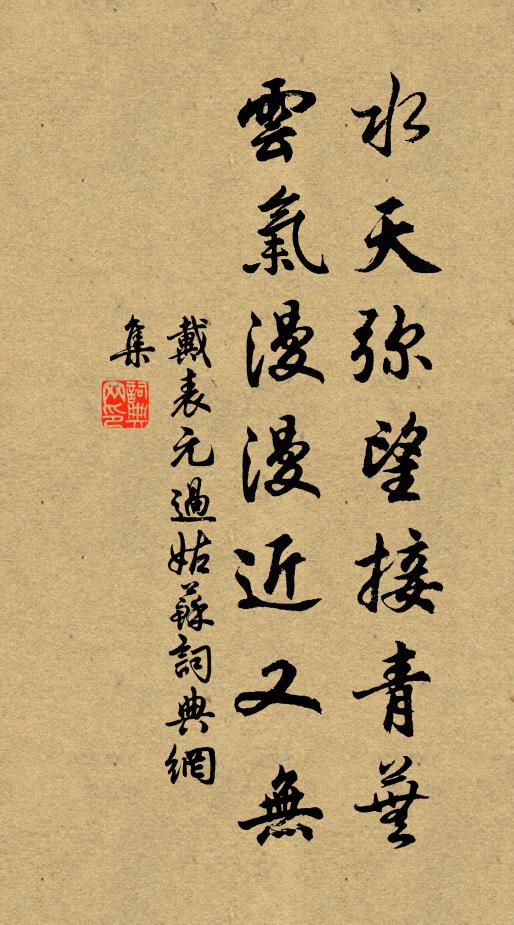 水天弥望接青蕪
雲氣漫漫近又無
戴表元過姑蘇詞典網
集
詞典
网印